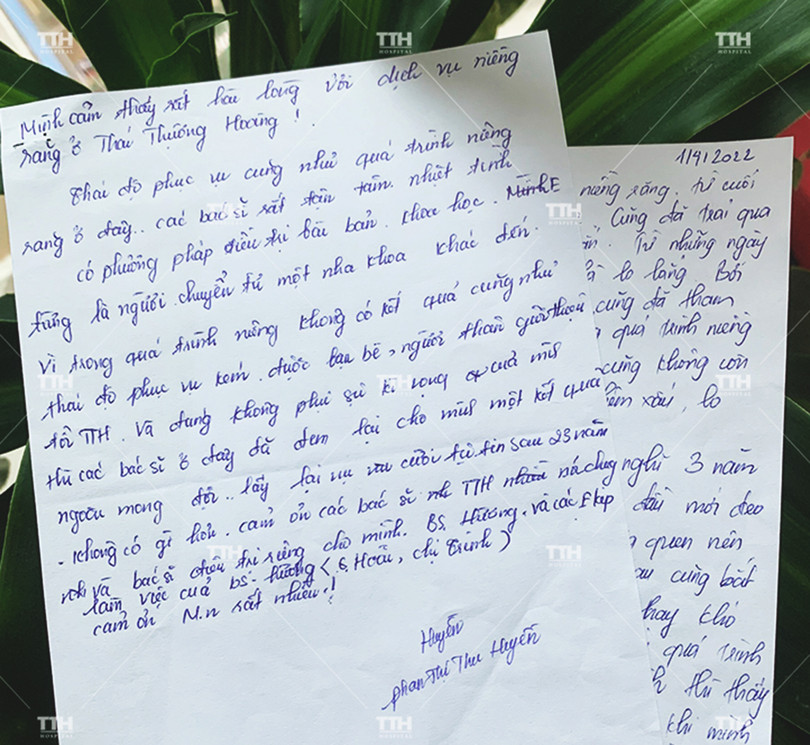 Mình cảm thấy rất hài lòng với dịch vụ niềng
răng ở Thái Thượng Hoàng!
Thái độ phục vụ cũng như quá trình niềng
răng ở đây.. các bác sĩ rất tận tâm. nhiệt tình
có phương pháp điều trị bài bản. khoa học. Mình E
từng là người chuyển từ một nha khoa khác đến.
Vì trong quá trình niềng không có kết quả cũng như
thái độ phục vụ kém. được bạn bè, người thân giới thiệu
tới TTH. Và đúng không phụ sự kì vọng của mình
thì các bác sĩ ở đây đã đem lại cho mình một kết quả
ngoài mong đợi.. lấy lại nụ cười tự tin sau 23 năm
. không có gì hơn. cảm ơn các bác sĩ TTH nói chung
và bác sĩ điều trị riêng cho mình. BS Hường. và các Ekip
làm việc của BS. Hường (c Hoài, chị Trinh)
cảm ơn M.n rất nhiều.!
Huyền
Phan Thị Thu Huyền
11/4/2022
niềng răng. từ cuối
Cũng đã trải qua
Từ những ngày
lo lắng. Bởi
cũng đã tham
quá trình niềng
cũng không còn
xấu, lo
nghĩ 3 năm
đầu mới đeo
quen nên
cũng bắt
hay khó
quá trình
thì thấy
khi mình
TTH
HOSPITAL